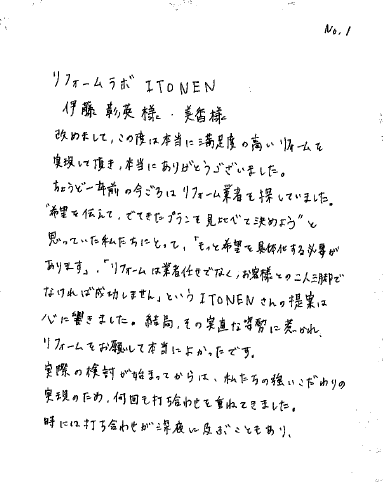 No. 1
リフォームラボ ITONEN
伊藤 彰英 様 ・ 美香様
改めまして、この度は本当に満足度の高いリフォームを
実現して頂き、本当にありがとうございました。
ちょうど一年前の今ごろはリフォーム業者を探していました。
"希望を伝えて、でてきたプランを見比べて決めよう"と
思っていた私たちにとって、「もっと希望を具体化する必要が
あります」、「リフォームは業者任せでなく、お客様との二人三脚で
なければ成功しません」というITONENさんの提案は
心に響きました。結局、その実直な姿勢に惹かれ、
リフォームをお願して本当によかったです。
実際の検討が始まってからは、私たちの強いこだわりの
実現のため、何回も打ち合わせを重ねてきました。
時には打ち合わせが深夜に及ぶこともあり、